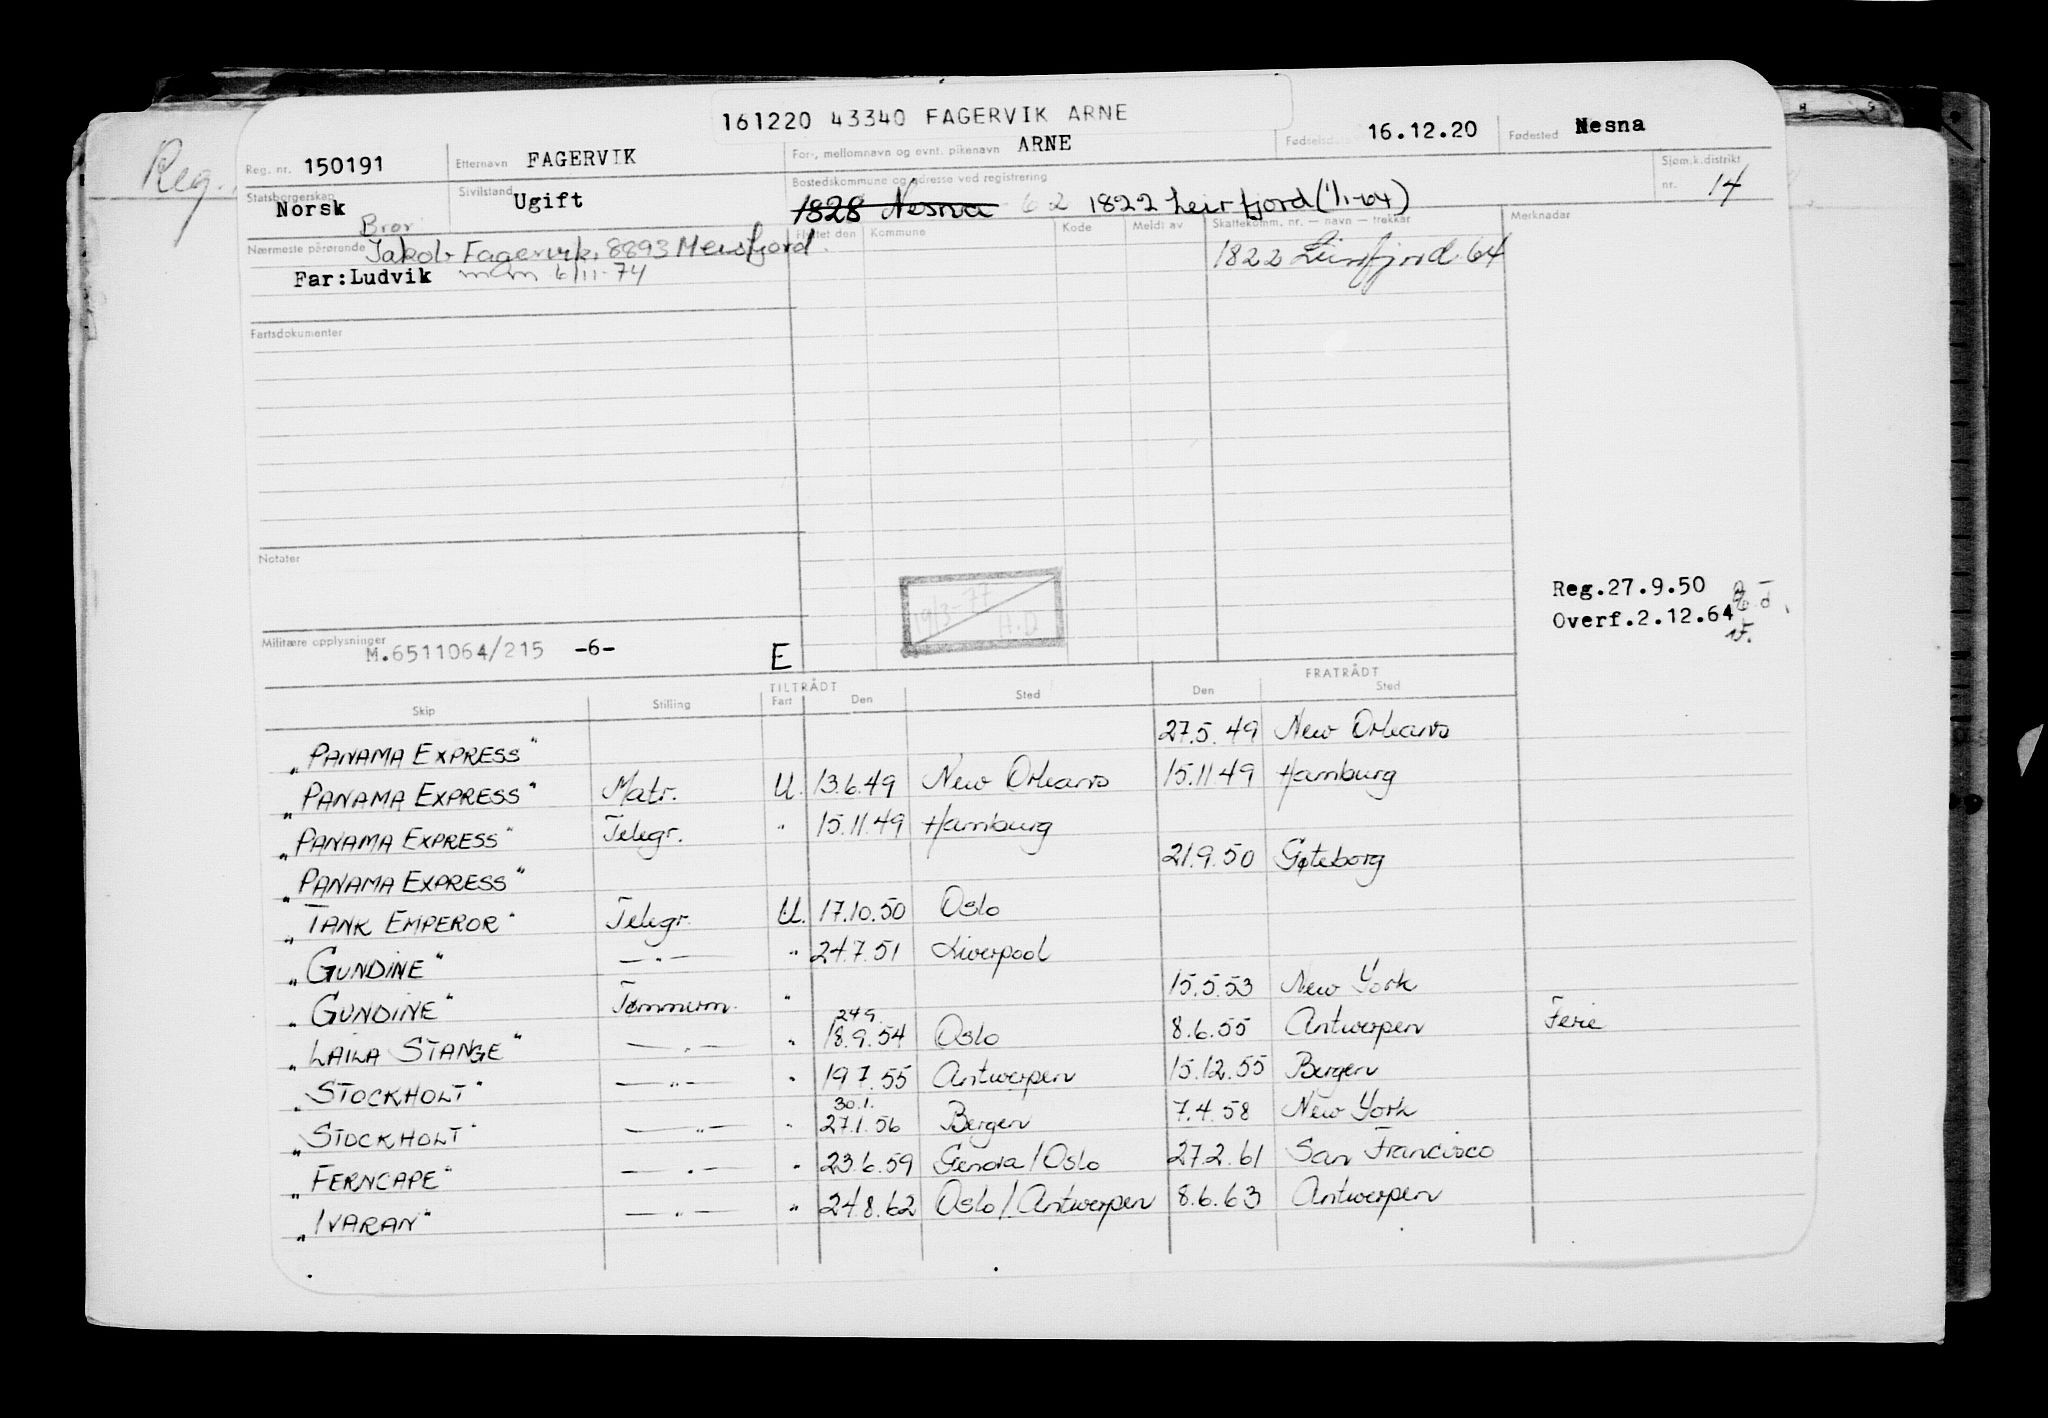 161220 43340 FAGERVIK ARNE
Reg.
Reg. nr. 150191 Etternavn FAGERVIK For-, mellomnavn og evnt. pikenavn ARNE 16.12.20 Fødested Nesna
Statsborgerskap Norsk Sivilstand Ugift Bostedskommune og adresse ved registrering 1828 Nesna 62 1822 Leirfjord (1/1-64) Sjøm.k.distrikt nr. 14
Bror
Nærmeste pårørende Jakob Fagervik, 8893 Meisfjord Flyttet den Kommune Kode Meldt av Skattekomm. nr. – navn – trekkår Merknader
Far:Ludvik 6/11-74 1822 Leirfjord 64
Fartsdokumenter
Notater
19/3-77 A.D
Reg.27.9.50
Overf.2.12.64
Militære opplysninger M.6511064/215 -6- E
TILTRÅDT FRATRÅDT
Skip Stilling Fart Den Sted Den Sted
"PANAMA EXPRESS" 27.5.49 New Orleans
"PANAMA EXPRESS" Matr. U. 13.6.49 New Orleans 15.11 49 Hamburg
"PANAMA EXPRESS" Telegr. " 15.11.49 Hamburg
"PANAMA EXPRESS" 21.9.50 Gøteborg
"TANK EMPEROR" Telegr. U. 17.10.50 Oslo
"GUNDINE" —"— " 24.7.51 Liverpool
"GUNDINE" Tømmerm. " 15.5.53 New York
249
"LAILA STANGE" —"— " 18.9.54 Oslo 8.6.55 Antwerpen Ferie
"STOCKHOLT" —"— " 19 7.55 Antwerpen 15.12.55 Bergen
30.1.
"STOCKHOLT" —"— " 27.1.56 Bergen 7.4.58 New York
"FERNCAPE" —"— " 23.6.59 Genova/Oslo 27.2.61 San Francisco
"IVARAN" —"— " 24.8.62 Oslo/Antwerpen 8.6.63 Antwerpen